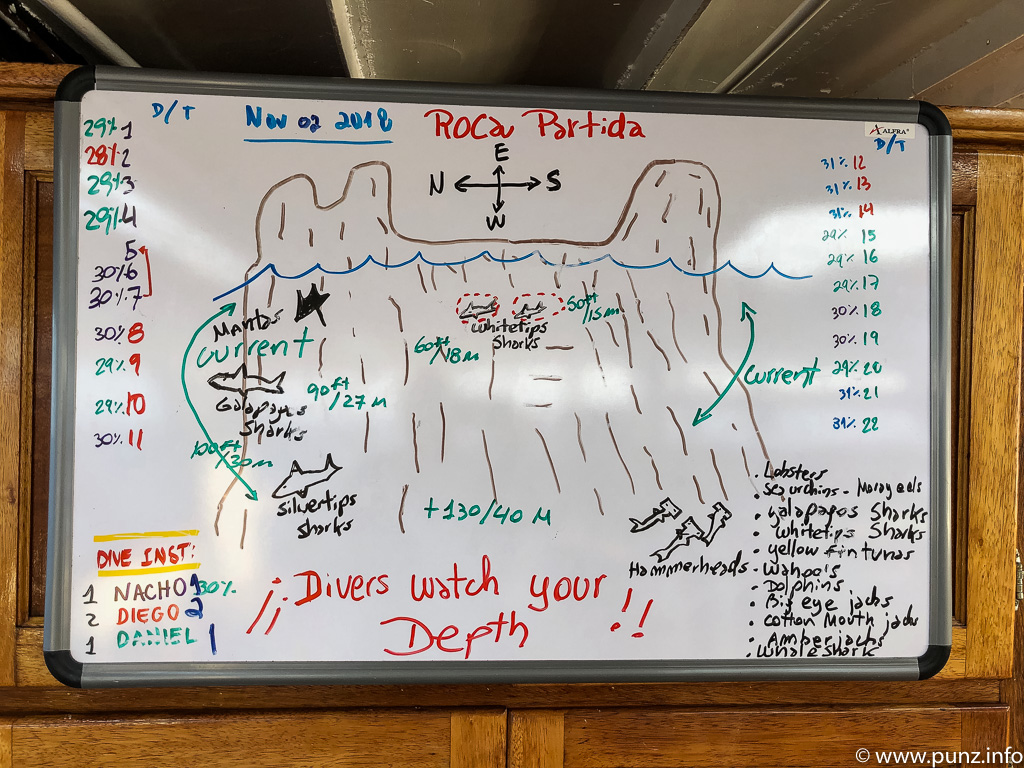 D/T
Nov 02 2018
Roca Partida
ALFRA
D/T
E
N S
W
29% 1
28% 2
29% 3
29% 4
5
30% 6
30% 7
30% 8
29% 9
29% 10
30% 11
31% 12
31% 13
31% 14
29% 15
29% 16
29% 17
30% 18
30% 19
29% 20
31% 21
31% 22
Mantas
current
Galapagos
sharks
90ft
/27 M
100ft
/30 m
Silvertips
sharks
60ft
/18 M
Whitetips
Sharks
50ft
/15 m
current
+130/40 M
Hammerheads
. Lobsters
. Seaurchins - Moray eels
. galapagos Sharks
. whitetips Sharks
. yellow fin tunas
. Wahoo's
. Dolphins
. Big eye jacks
. cotton Mouth jacks
. Amberjacks
. Whale shark
DIVE INST:
1 NACHO 1 30%
2 DIEGO 2
1 DANIEL 1
¡¡ Divers watch your
Depth !!
© www.punz.info